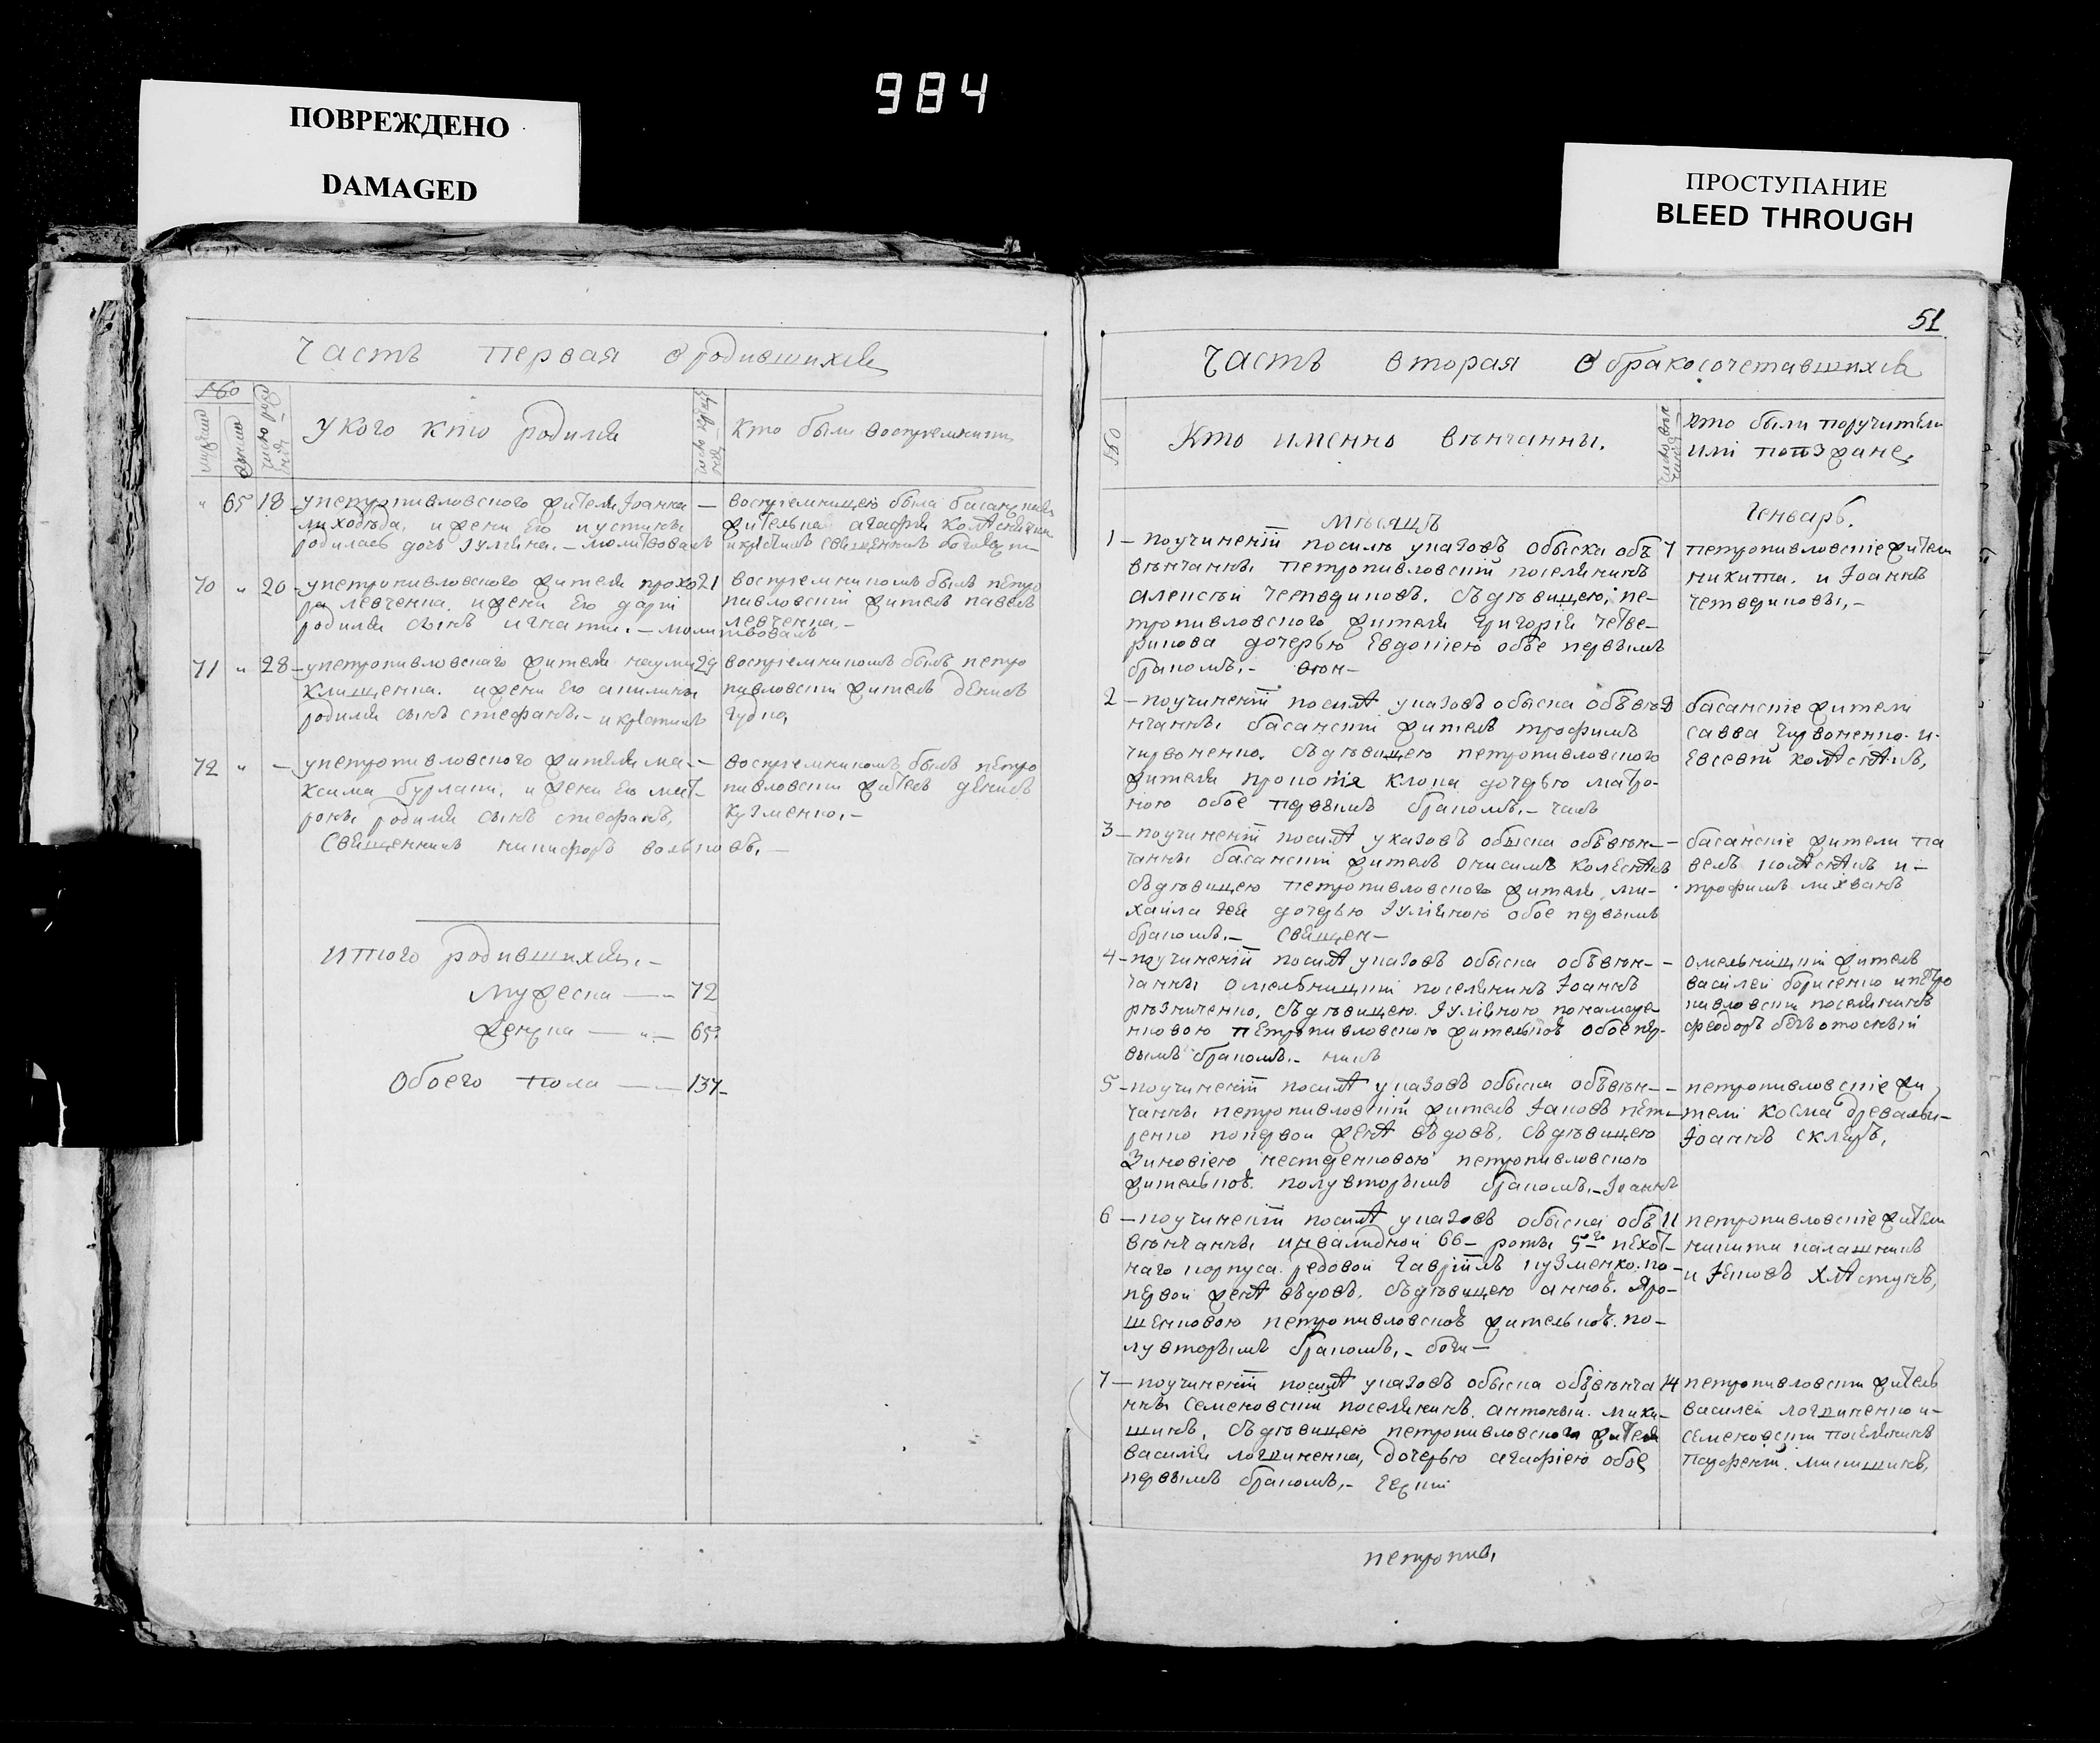 984
ПОВРЕЖДЕНО
DAMAGED
ПРОСТУПАНИЕ
BLEED THROUGH
Часть первая О родившихся
№
мужеска
женска
число рожд
У кого кто родился
Кто были восприемники
" 65 18 – у петропивловского жителя Iоанна –
лиходѣда, и жены его иустины
родилась дочь Iулiяна. – молитвовалъ
восприемницею была басанская
жителька агафiя
70 " 20 – у петропивловского жителя прохо 21
ра левченка. и жены его дарiи
родился сынъ игнатiи. – молитвовалъ
восприемникомъ былъ петро
павловскiй житель павелъ
левченко, –
71 " 28 – у петропивловскаго жителя наума 29
клищенка. и жены его акилины
родился сынъ стефанъ. – и крестилъ
восприемникомъ былъ петро
пивловскiи житель денисъ
гудко,
72 " – – у петропивловского жителя ма- –
ксима бурлаки, и жены его мат-
роны родился сынъ стефанъ,
восприемникомъ былъ петро
пивловскiи житель денисъ
кузменко, –
Священникъ никифоръ
итого родившихся. –
мужеска — " 72
женска — " — 65
Обоего пола — 137
51
Часть вторая О бракосочетавшихся
№
Кто именно вѣнчанны.
Кто были поручители
или поезжане.
Мѣсяцъ
Генварь.
1 – по учиненiи по силѣ указовъ обыска объ 7
вѣнчанны петропивловскiй поселянинъ
алексѣй четвериковъ. съ дѣвицею, пе-
тропивловского жителя григорiя четве-
рикова дочерью Евдокiею обое первымъ
бракомъ. –
петропивловскiе жители
никита. и Iоаннъ
четвериковы, –
2 – по учиненiи по силѣ указовъ обыска объвѣ 8
нчанны басанскiй житель трофимъ
червоненко. съ дѣвицею петропивловского
жителя прокопiя клопа дочерью матро-
ною обое первымъ бракомъ. –
басанскiе жители
савва червоненко. и-
Евсевiй
3 – по учиненiи по силѣ указовъ обыска объвѣн- –
чанны басанскiй житель онисимъ
съ дѣвицею петропивловского жителя, ми-
хаила дочерью Iулiяною обое первымъ
бракомъ. – Священ-
басанскiе жители па
велъ и-
трофимъ лихванъ
4 – по учиненiи по силѣ указовъ обыска объвѣн- –
чанны омельницкiй поселянинъ Iоаннъ
рѣзниченко, съ дѣвицею. Iулiяною
петропивловскою жителькою обое пер-
вымъ бракомъ. – никъ
омельницкiй житель
василей борисенко и петро
пивловскiи поселянинъ
феодоръ
5 – по учиненiи по силѣ указовъ обыска объвѣн- –
чанны петропивловскiй житель Iаковъ пет-
ренко по первой женѣ вдовъ, съ дѣвицею
Зиновiею нестеренковою петропивловскою
жителькою. полувторымъ бракомъ. – Iоаннъ
петропивловскiе жи
тели косма древаль и-
Iоаннъ скляръ,
6 – по учиненiи по силѣ указовъ обыска объ 11
вѣнчанны инвалидной 66– роты 5го пехот-
наго корпуса. редовой гаврiилъ кузменко. по-
первой женѣ вдовъ, съ дѣвицею анною. Яро-
шенковою петропивловскою жителькою. по-
лувторымъ бракомъ, –
петропивловскiе жители
никита калашникъ
и Iаковъ хлѣстунъ,
7 – по учиненiи по силѣ указовъ обыска объвѣнча 14
нны Семеновскiй поселянинъ. антонiй. мики-
шинъ, съ дѣвицею петропивловского жителя
василiя логвиненка, дочерью агафiею обое
первымъ бракомъ, –
петропивловскiи житель
василей логвиненко и-
семеновскiи поселянинъ
парфенiй. микишинъ,
петропив,